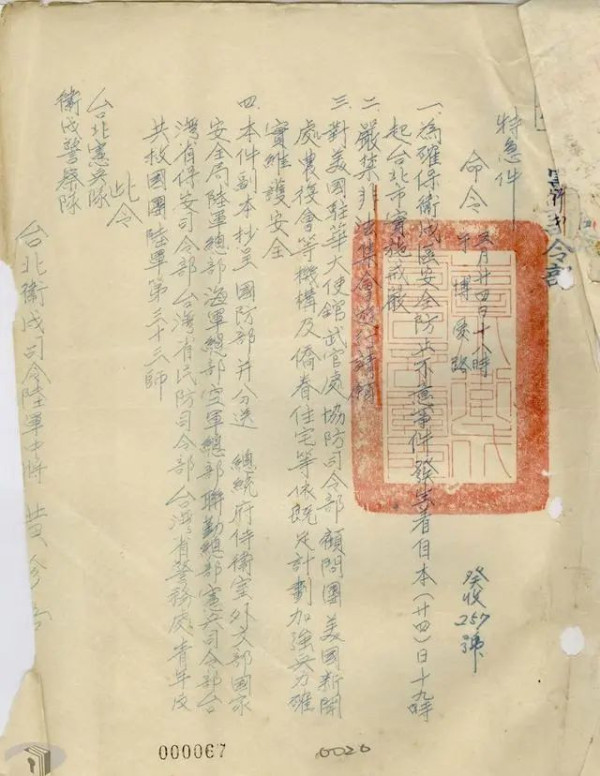 特急件
命令
五月廿四日十八時
于博愛路
癸收257號
一、為確保衛戍區安全防止不意事件發生着自本(廿四)日十九時
起台北市實施戒嚴
二、嚴禁非法集會遊行請願
三、對美國駐華大使館武官處協防司令部顧問團美國新聞
處農復會等機構及僑眷住宅等依既定計劃加強兵力確
實維護安全
四、本件副本抄呈國防部并分送 總統府侍衛室外交部國家
安全局陸軍總部海軍總部空軍總部聯勤總部憲兵司令部台
灣省保安司令部台灣省民防司令部台灣省警務處青年反
共救國團陸軍第三十三師
此令
台北憲兵隊
衛戍警察隊
台北衛戍司令陸軍中將黃珍吾
000067
0026